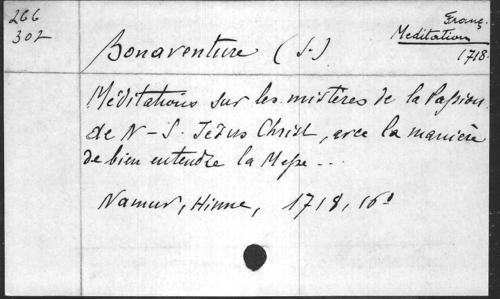 266
302
Franç.
Meditation
1718.
Bonaventure (S.)
Méditations sur les mistères de la Passion
de N-S. Jesus Christ, avec la manière
de bien entendre la Messe...
Namur, Hinne, 1718, 16º